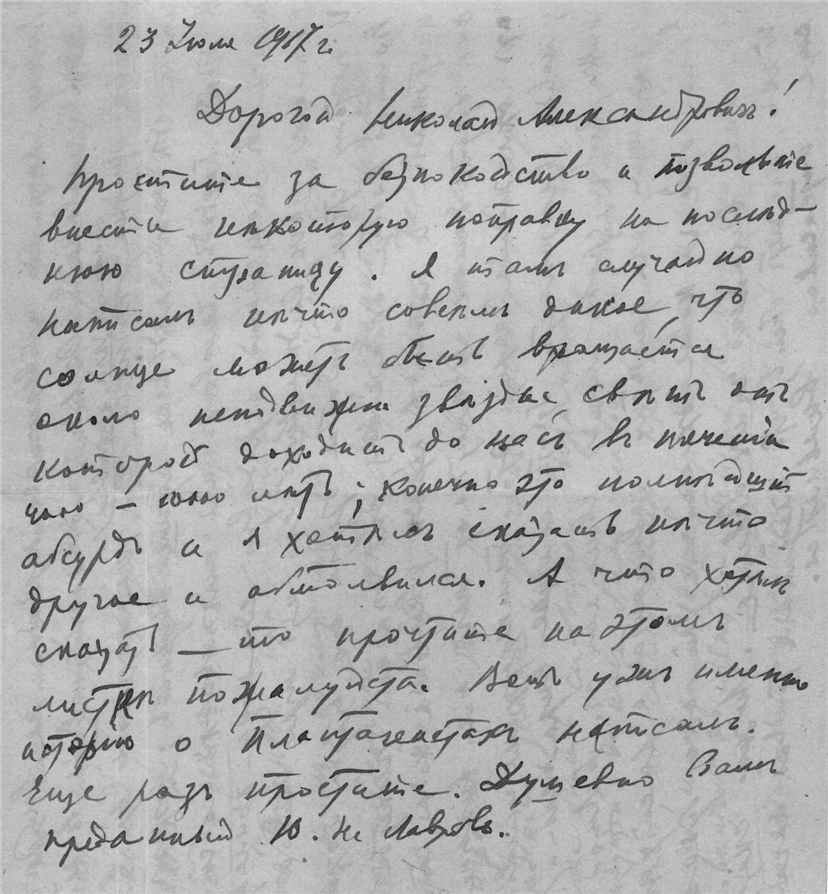 23 Июля 1917 г.
Дорогой Николай Александровичъ!
Простите за безпокойство и позвольте
внести некоторую поправку на послѣд-
нюю страницу. Я тамъ случайно
написалъ нѣчто совсѣмъ дикое, что
солнце можетъ быть вращается
около неподвижн звѣзды, свѣтъ отъ
которой доходитъ до насъ въ теченiи
лѣтъ; конечно это полнѣйшiй
абсурдъ и я хотѣлъ сказать нѣчто
другое и обмолвился. А что хотѣлъ
сказать — то прочтите на этомъ
листкѣ пожалуйста. Вотъ ужъ именно
исторiю о написалъ.
Еще разъ простите. Душевно Вамъ
преданный Ю.